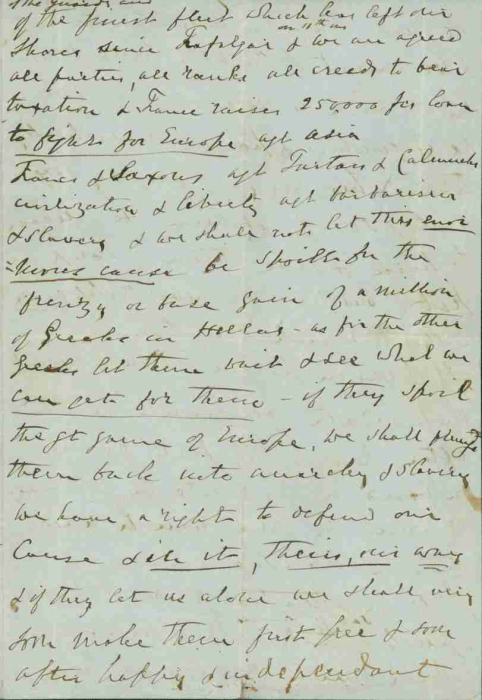 of the finest fleet which has left our
shores since Trafalgar & we are agreed
all parties, all ranks all creeds to bear
taxation & France raises 250,000 for
to fight for Europe agt Asia
Francs & Saxons agt Tartars & Calmucks
civilization & liberty agt barbarism
& slavery & we shall not let this enor
=mous cause be spoilt for the
frenzy or base gain of a million
of Greeks in Hellas - as for the other
Greeks let them wait & see what we
can get for them - if they spoil
the gt game of Europe, we shall plunge
them back into anarchy & slavery
we have a right to defend our
Cause & in it, theirs, our way
& if they let us alone we shall very
soon make them first free & soon
after happy & independant